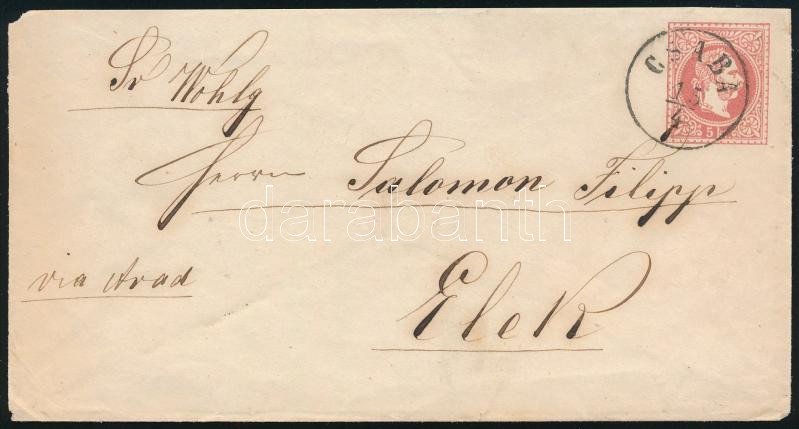 Sr Wohlg
CSABA
15
4
5
Herrn Salomon Filipp
darabanth
via Arad
Elek